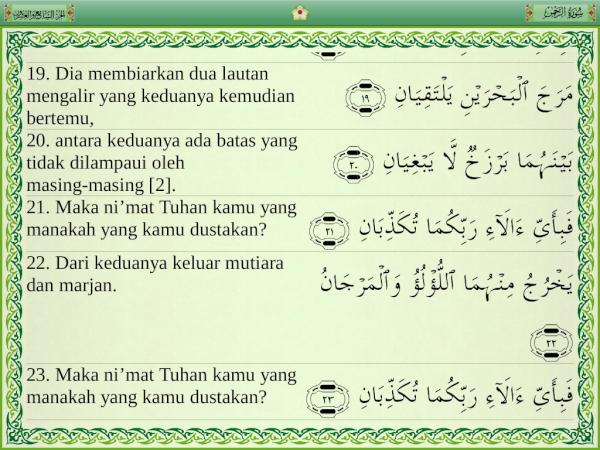 الجزء السابع والعشرون
سورة الرحمن
19. Dia membiarkan dua lautan
mengalir yang keduanya kemudian
bertemu,
مَرَجَ ٱلْبَحْرَيْنِ يَلْتَقِيَانِ ١٩
20. antara keduanya ada batas yang
tidak dilampaui oleh
masing-masing [2].
بَيْنَهُمَا بَرْزَخٌ لَّا يَبْغِيَانِ ٢٠
21. Maka ni’mat Tuhan kamu yang
manakah yang kamu dustakan?
فَبِأَىِّ ءَالَآءِ رَبِّكُمَا تُكَذِّبَانِ ٢١
22. Dari keduanya keluar mutiara
dan marjan.
يَخْرُجُ مِنْهُمَا ٱللُّؤْلُؤُ وَٱلْمَرْجَانُ
٢٢
23. Maka ni’mat Tuhan kamu yang
manakah yang kamu dustakan?
فَبِأَىِّ ءَالَآءِ رَبِّكُمَا تُكَذِّبَانِ ٢٣